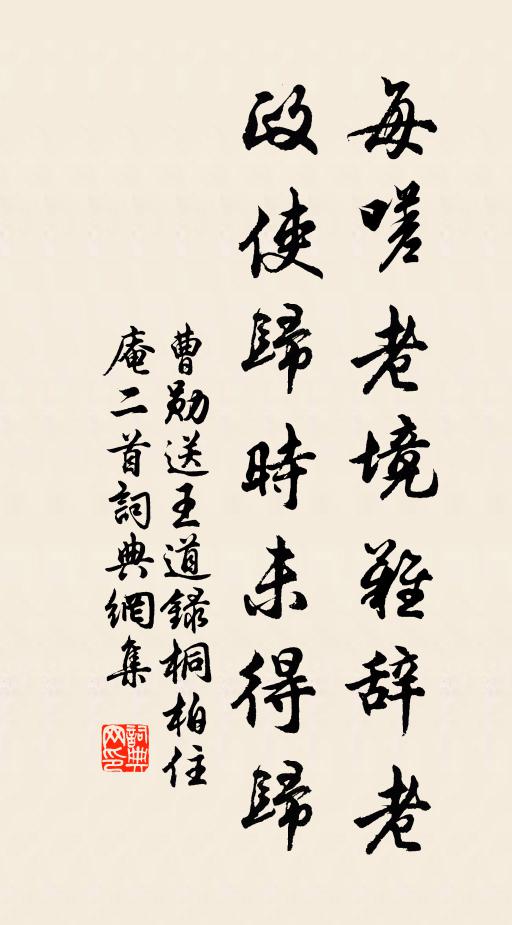 每嗟老境難辞老
政使歸時未得歸
曹勛送王道録桐柏住
庵二首詞典網集
詞典
网印